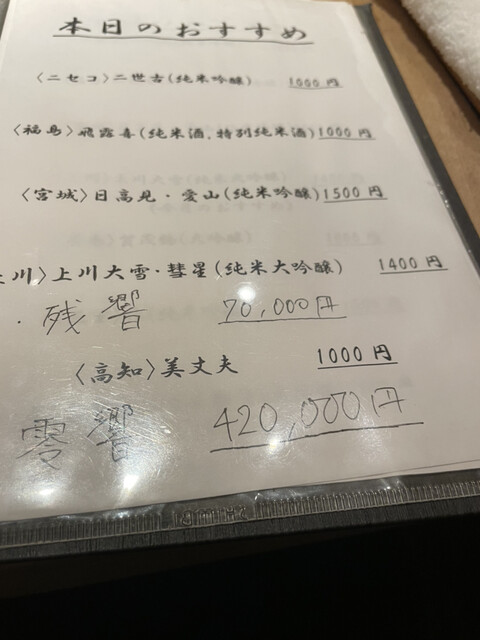 本日のおすすめ
〈ニセコ〉二世古(純米吟醸) 1000円
〈福島〉飛露喜(純米酒.特別純米酒)1000円
〈宮城〉日高見・愛山(純米吟醸)1500円
川〉上川大雪・彗星(純米大吟醸) 1400円
・残響 70,000円
〈高知〉美丈夫 1000円
零響 420,000円